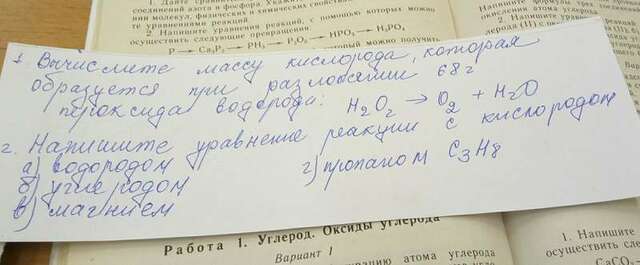 1. Дайте сравните
соединений азота и фосфора. Укажите
нии молекул, физических и химических свойствах
те уравнениями реакций.
2. Напишите уравнения реакций, с помощью которых можно
осуществить следующие превращения
P → Ca₃P₂ → PH₃ → P₂O₅ → HPO₃ → H₃PO₄
который можно получить
Напишите формулы трёх
окисления атома углерода
2. Напишите уравнения
1. Вычислите массу кислорода, которая
образуется при разложении 68 г
пероксида водорода:
H₂O₂ → O₂ + H₂O
2. Напишите уравнение реакции с кислородом
а) водородом
б) углеродом
в) магнием
г) пропаном C₃H₈
Работа 1. Углерод. Оксиды углерода
Вариант 1
атома углерода
1. Напишите
осуществить сле
CaCO₃